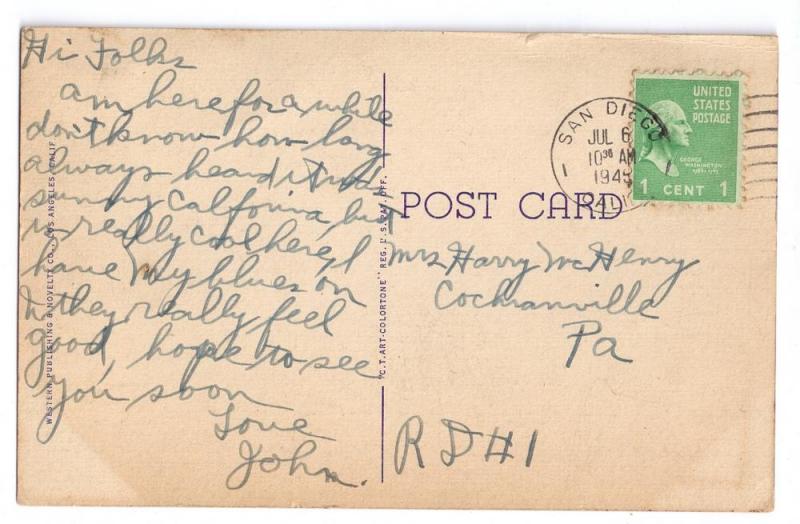 Hi Folks
am here for a while
don't know how long
always heard it was
sunny Calfornia, but
is really cool here, I
have my blues on
& they really feel
good, hope to see
you soon
Love
John.
WESTERN PUBLISHING & NOVELTY CO., LOS ANGELES, CALIF.
"C.T. ART-COLORTONE" REG. U.S. PAT. OFF.
POST CARD
SAN DIEGO
JUL 6
10 30 AM
1945
CALIF
UNITED
STATES
POSTAGE
GEORGE
WASHINGTON
1 CENT 1
Mrs Harry McHenry
Cochranville
Pa
RD#1